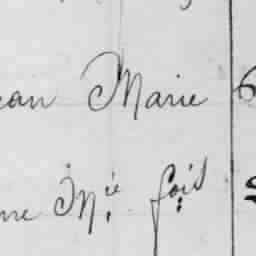 ean Marie
ne M.ie fois